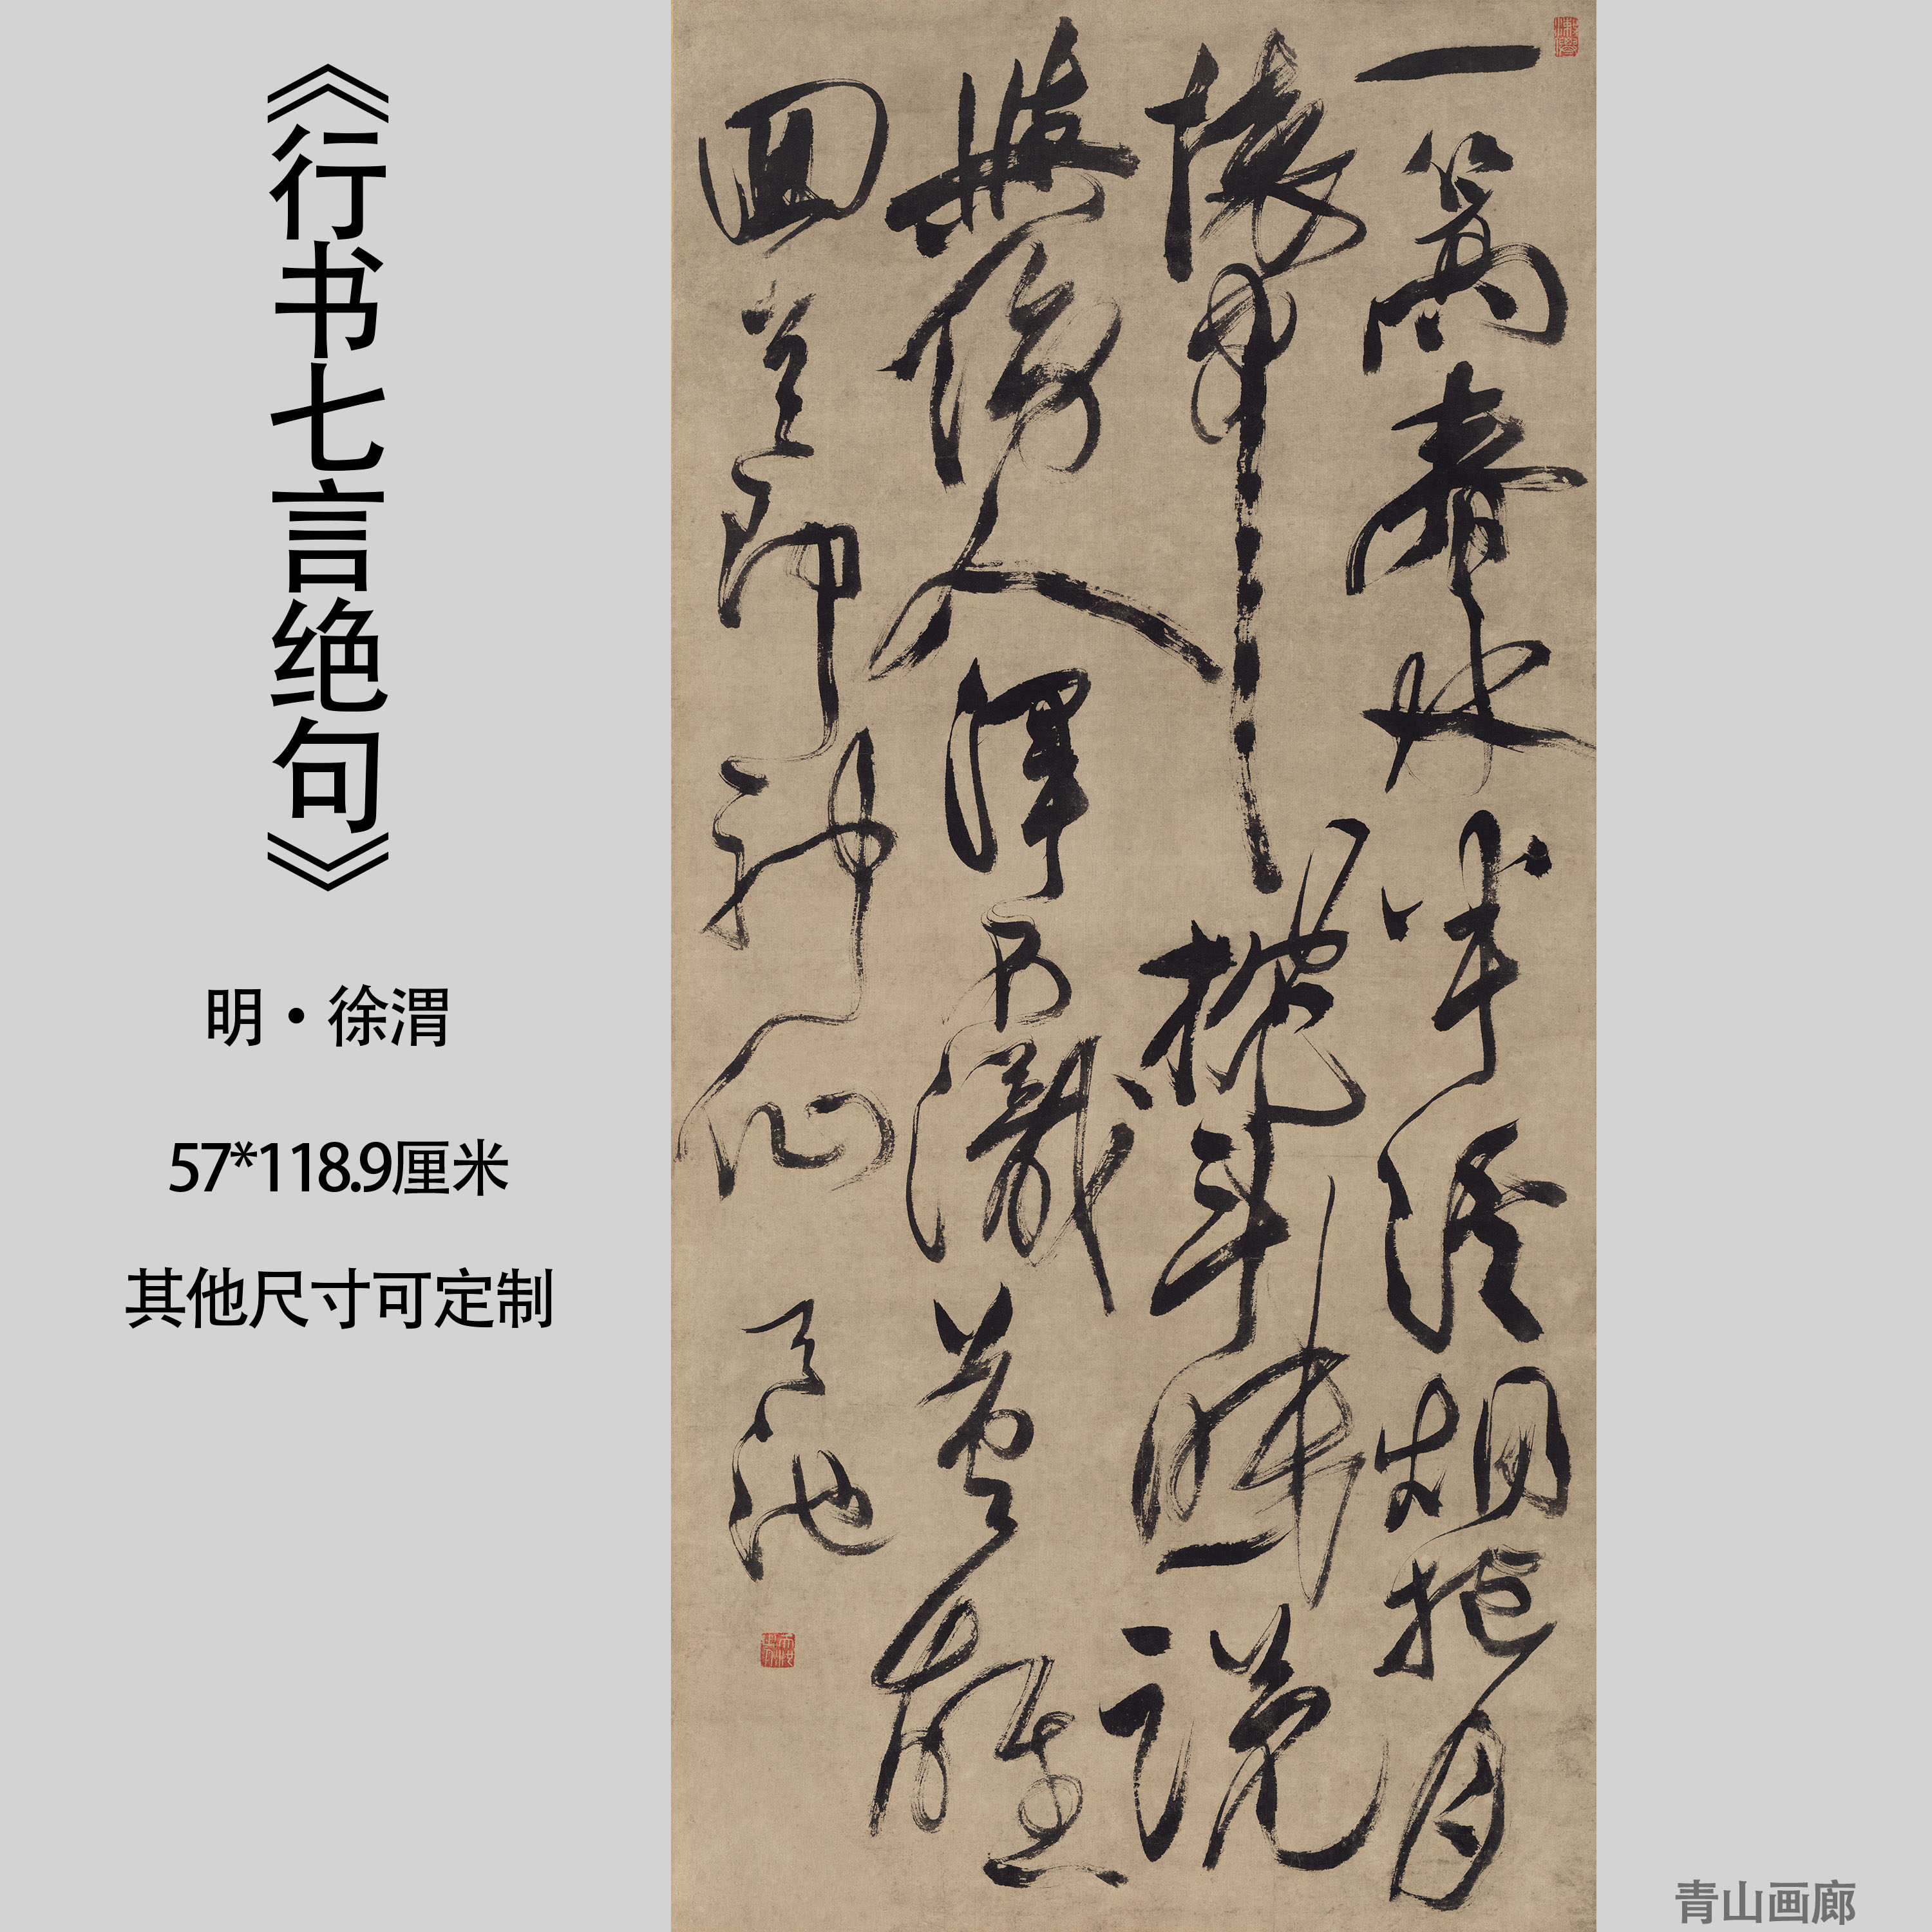 《行书七言绝句》
明·徐渭
57*118.9厘米
其他尺寸可定制
一篙春水半溪烟抱月
懷中枕斗眠說
與傍人渾不識英雄
回首即神仙 天池
青山画廊